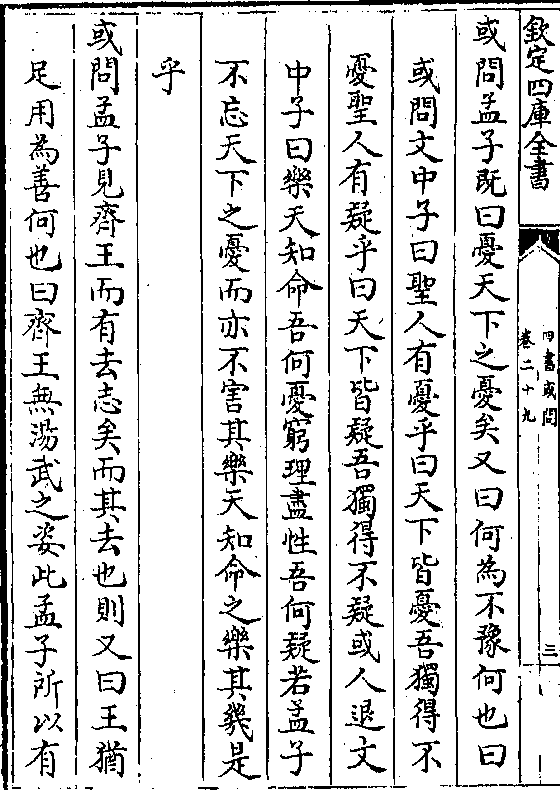 欽定四庫全書
四書或問
卷二十九
三
或問孟子既曰憂天下之憂矣又曰何為不豫何也曰
或問文中子曰聖人有憂乎曰天下皆憂吾獨得不
憂聖人有疑乎曰天下皆疑吾獨得不疑或人退文
中子曰樂天知命吾何憂窮理盡性吾何疑若孟子
不忘天下之憂而亦不害其樂天知命之樂其幾是
乎
或問孟子見齊王而有去志矣而其去也則又曰王猶
足用為善何也曰齊王無湯武之姿此孟子所以有